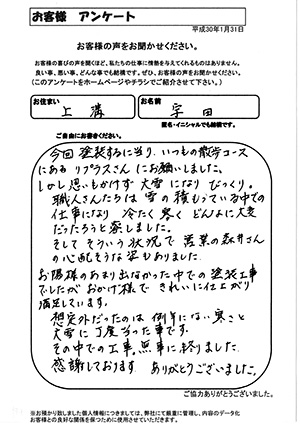 お客様 アンケート
平成30年1月31日
お客様の声をお聞かせください。
お客様の喜びの声を聞くほど、私たちの仕事に情熱を与えてくれるものはありません。
良い事、悪い事、どんな事でも結構です。ぜひ、お客様の声をお聞かせください。
(このアンケートをホームページやチラシでご紹介させて下さい。)
お住まい
上溝
お名前
宇田
匿名・イニシャルでも結構です。
ご自由にお書きください。
今回塗装するに当り、いつもの散歩コース
にあるリプラスさんにお願いしました。
しかし思いもかけず大雪になりびっくり。
職人さんたちは雪の積もっている中での
仕事になり冷たく寒くどんなに大変
だったろうと察しました。
そしてそういう状況で営業の森井さん
の心配そうな姿もありました。
お陽様のあまり出なかった中での塗装工事
でしたがおかげ様できれいに仕上がり
満足しています。
想定外だったのは例年にない寒さと
大雪に丁度当った事です。
その中での工事。無事に終りました。
感謝しております。ありがとうございました。
ご協力ありがとうございました。
※お預かり致しました個人情報につきましては、弊社にて厳重に管理し、内容のデータ化
お客様との良好な関係を保つために使用させていただきます。